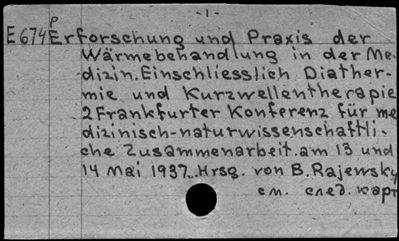 -1-
E 674 P Erforschung und Praxis der
Wärmebehandlung in der Me-
dizin. Einschliesslich Diather-
mie und Kurzwellentherapie
2 Frankfurter Konferenz für me
dizinisch-naturwissenschaftli-
che Zusammenarbeit. am 13 und
14 Mai 1937. Hrsg. von B. Rajewsky
см. след. карт